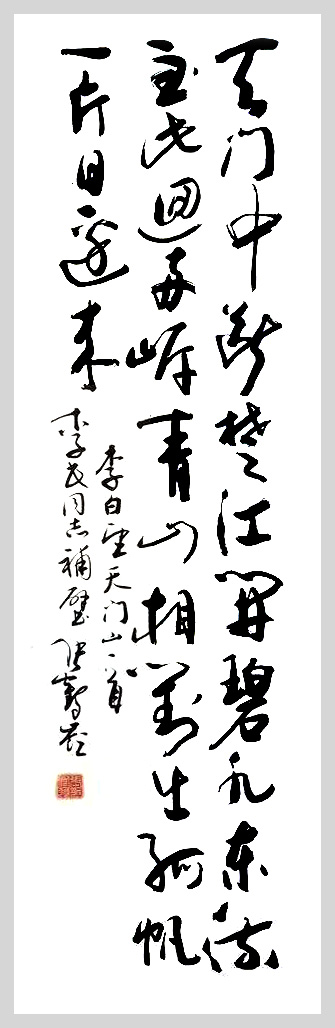 天门中断楚江開碧水东流
至此迴两岸青山相對出孤帆
一片日邊来
李白望天门山一首
同志補壁